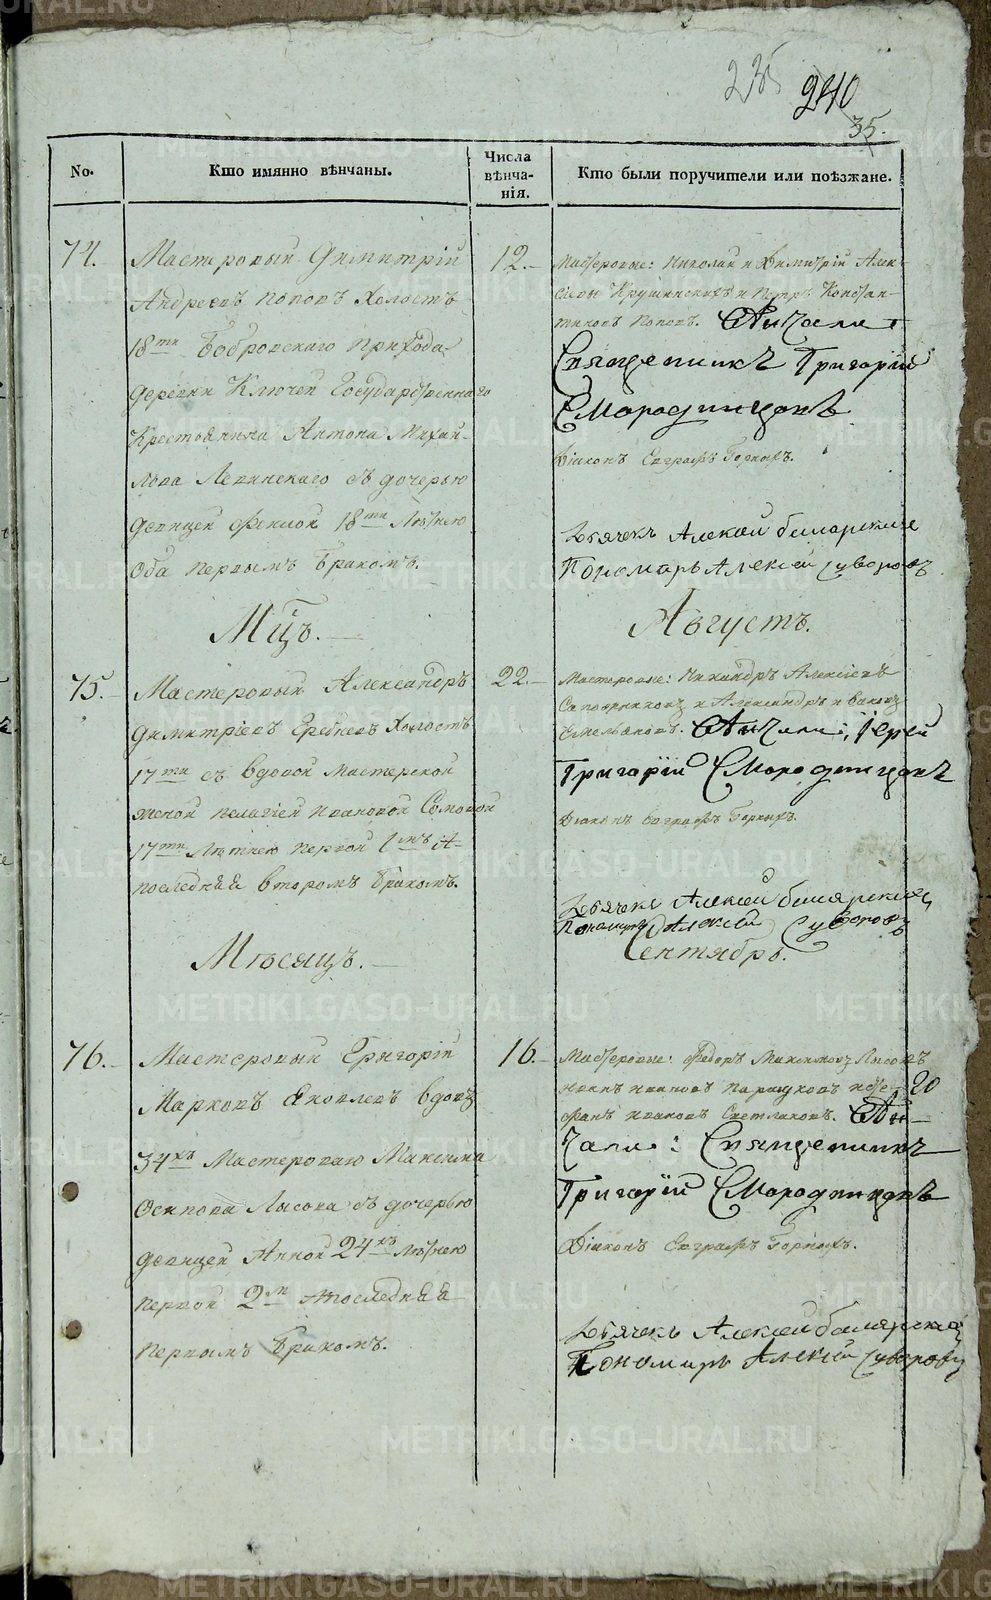 235
240
35.
No.
Кто имянно вѣнчаны.
Числа вѣнча-нія.
Кто были поручители или поѣзжане.
74.
Мастеровый Димитрій
Андреевъ Поповъ Холостъ
18ти Бобровскаго прихода
деревни Ключей Государственнаго
Крестьянина Антона Михай-
лова Левинскаго съ дочерью
девицей Феклой 18ти Лѣтнею
Оба первымъ бракомъ.
12.
Мастеровые: Николай и Димитрій Алек-
сѣевы Крушинскихъ и Петръ Констан-
тиновъ Поповъ. Вѣнчали
Священникъ Григорій
Смородинцовъ
Діаконъ Евграфъ Горныхъ.
Дьячекъ Алексей билярские
Пономарь Алексей Суворовъ
Мцъ.
Августъ.
75.
Мастеровый Александръ
Димитріевъ Холостъ
17ти съ вдовой мастерской
женой Пелагіей Ивановой Сомовой
17ти Лѣтнею первой 1мъ А-
последняя вторымъ бракомъ.
22.
Мастеровые: Никандръ Алексѣевъ
и Александръ
Емельяновъ. Вѣнчали: Іерей
Григорій Смородинцовъ
Діаконъ Евграфъ Горныхъ.
Дьячекъ Алексей билярские
Пономарь Алексей Суворовъ
Мѣсяцъ.
Сентябрь.
76.
Мастеровый Григорій
Марковъ Яковлевъ вдовъ
34хъ Мастероваго Максима
Осипова Лысова съ дочерью
девицей Анной 24хъ Лѣтнею
первой 2м Апоследняя
первымъ бракомъ.
16.
Мастеровые: Федоръ Максимовъ Лысовъ
Иванъ Ивановъ Паршуковъ и Сте-
фанъ Ивановъ Светлаковъ. Вѣн-
20
чали: Священникъ
Григорій Смородинцовъ
Діаконъ Евграфъ Горныхъ.
Дьячекъ Алексей билярской
Пономарь Алексей Суворовъ
METRIKI.GASO-URAL.RU